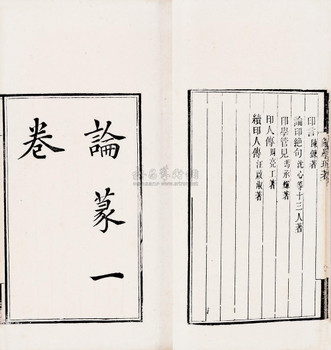 印言 陳鍊著
論印絶句 沈心等十三人著
印學管見 馮承輝著
印人傳 周亮工著
續印人傳 汪啟淑著
論篆一
卷